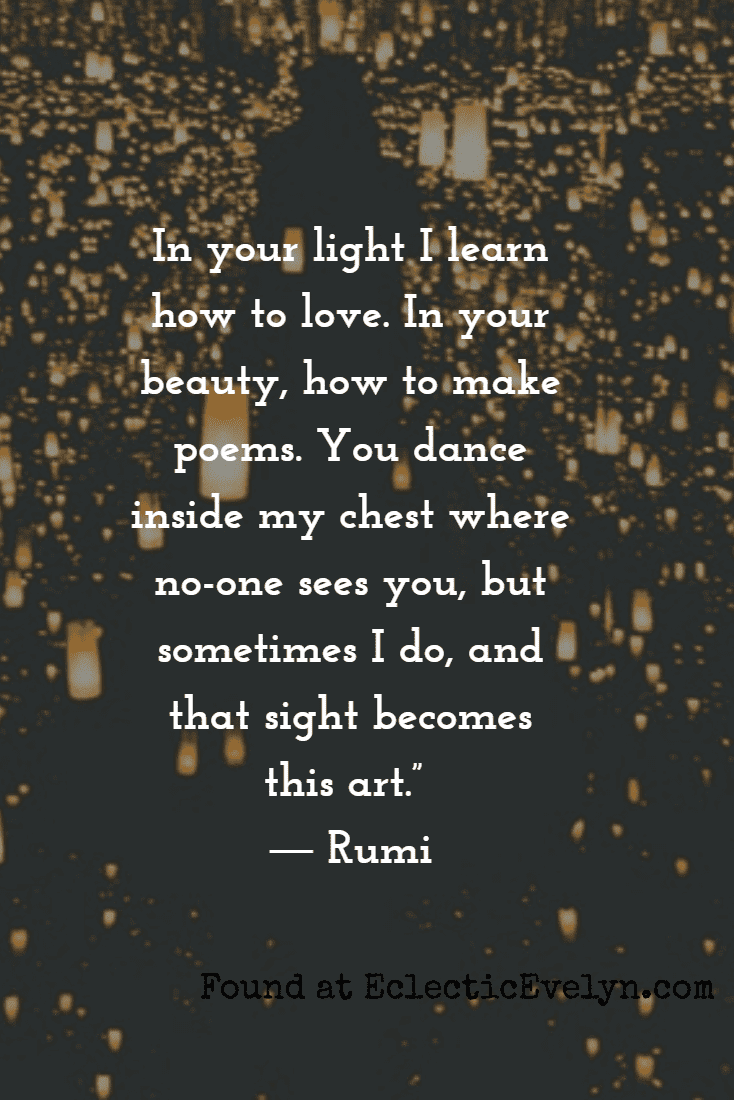 In your light I learn
how to love. In your
beauty, how to make
poems. You dance
inside my chest where
no-one sees you, but
sometimes I do, and
that sight becomes
this art.”
― Rumi
Found at EclecticEvelyn.com